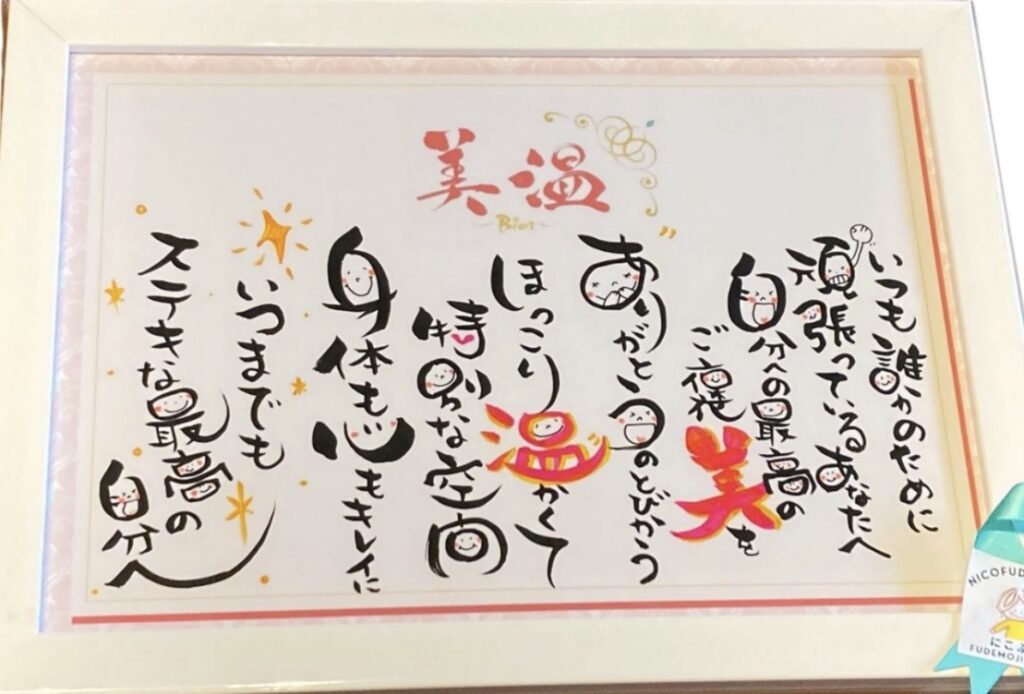 美温
Bion
いつも誰かのために
頑張っているあなたへ
自分への最高の
ご褒美を
ありがとうのとびかう
ほっこり温かくて
特別な空間
身体も心もキレイに
いつまでも
ステキな最高の
自分へ
NICOFUDE
にこふ
FUDEMOJI